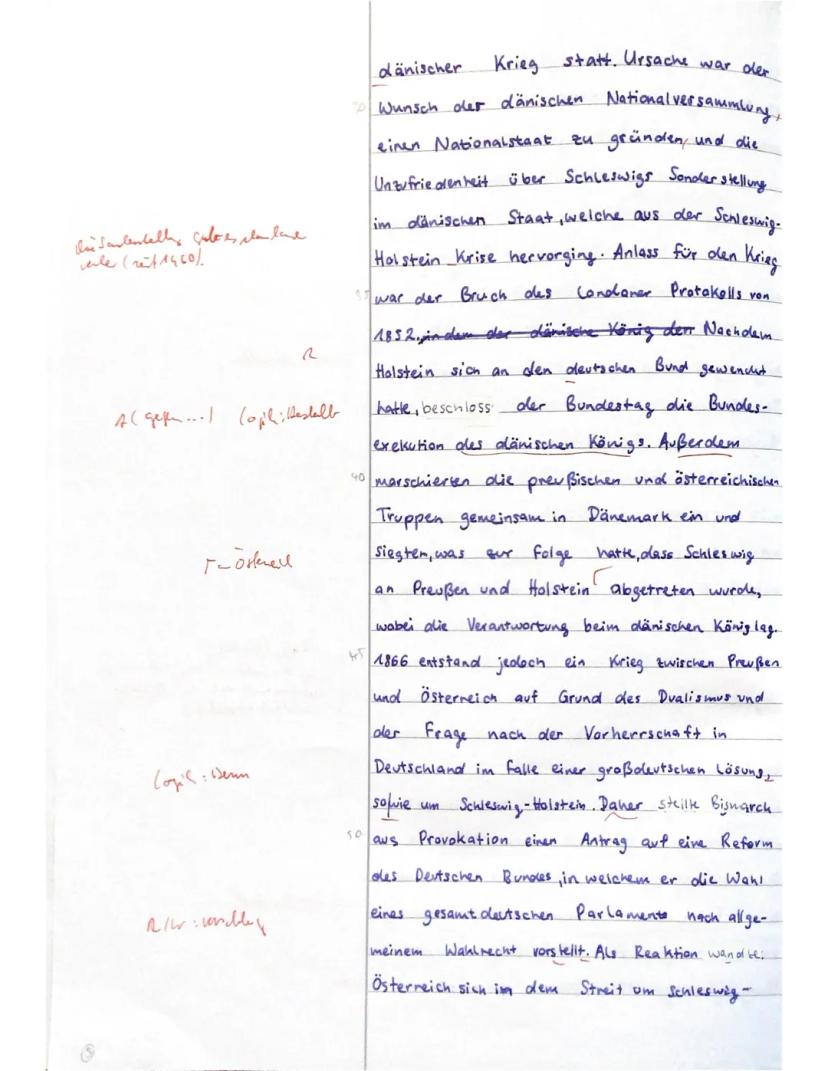 dänischer Krieg statt. Ursache war der
30 Wunsch der dänischen Nationalversammlung,
einen Nationalstaat zu gründen, und die
Unzufriedenheit über Schleswigs Sonderstellung
im dänischen Staat, welche aus der Schleswig-
Holstein Krise hervorging. Anlass für den Krieg
35 war der Bruch des Londoner Protokolls von
1852. in dem der dänische König den Nachdem
R
Holstein sich an den deutschen Bund gewendet
hatte, beschloss der Bundestag die Bundes-
A (gegen ...) Logik: deshalb
exekution des dänischen Königs. Außerdem
40 marschierten die preußischen und österreichischen
Truppen gemeinsam in Dänemark ein und
siegten, was zur Folge hatte, dass Schleswig
an Preußen und Holstein abgetreten wurde,
wobei die Verantwortung beim dänischen König lag.
45 1866 entstand jedoch ein Krieg zwischen Preußen
und Österreich auf Grund des Dualismus und
der Frage nach der Vorherrschaft in
Deutschland im Falle einer großdeutschen Lösung,
Logik: Denn
sowie um Schleswig-Holstein. Daher stellte Bismarck
50 aus Provokation einen Antrag auf eine Reform
des Deutschen Bundes, in welchem er die Wahl
eines gesamtdeutschen Parlaments nach allge-
meinem Wahlrecht vorstellt. Als Reaktion wandte
Österreich sich in dem Streit um Schleswig-